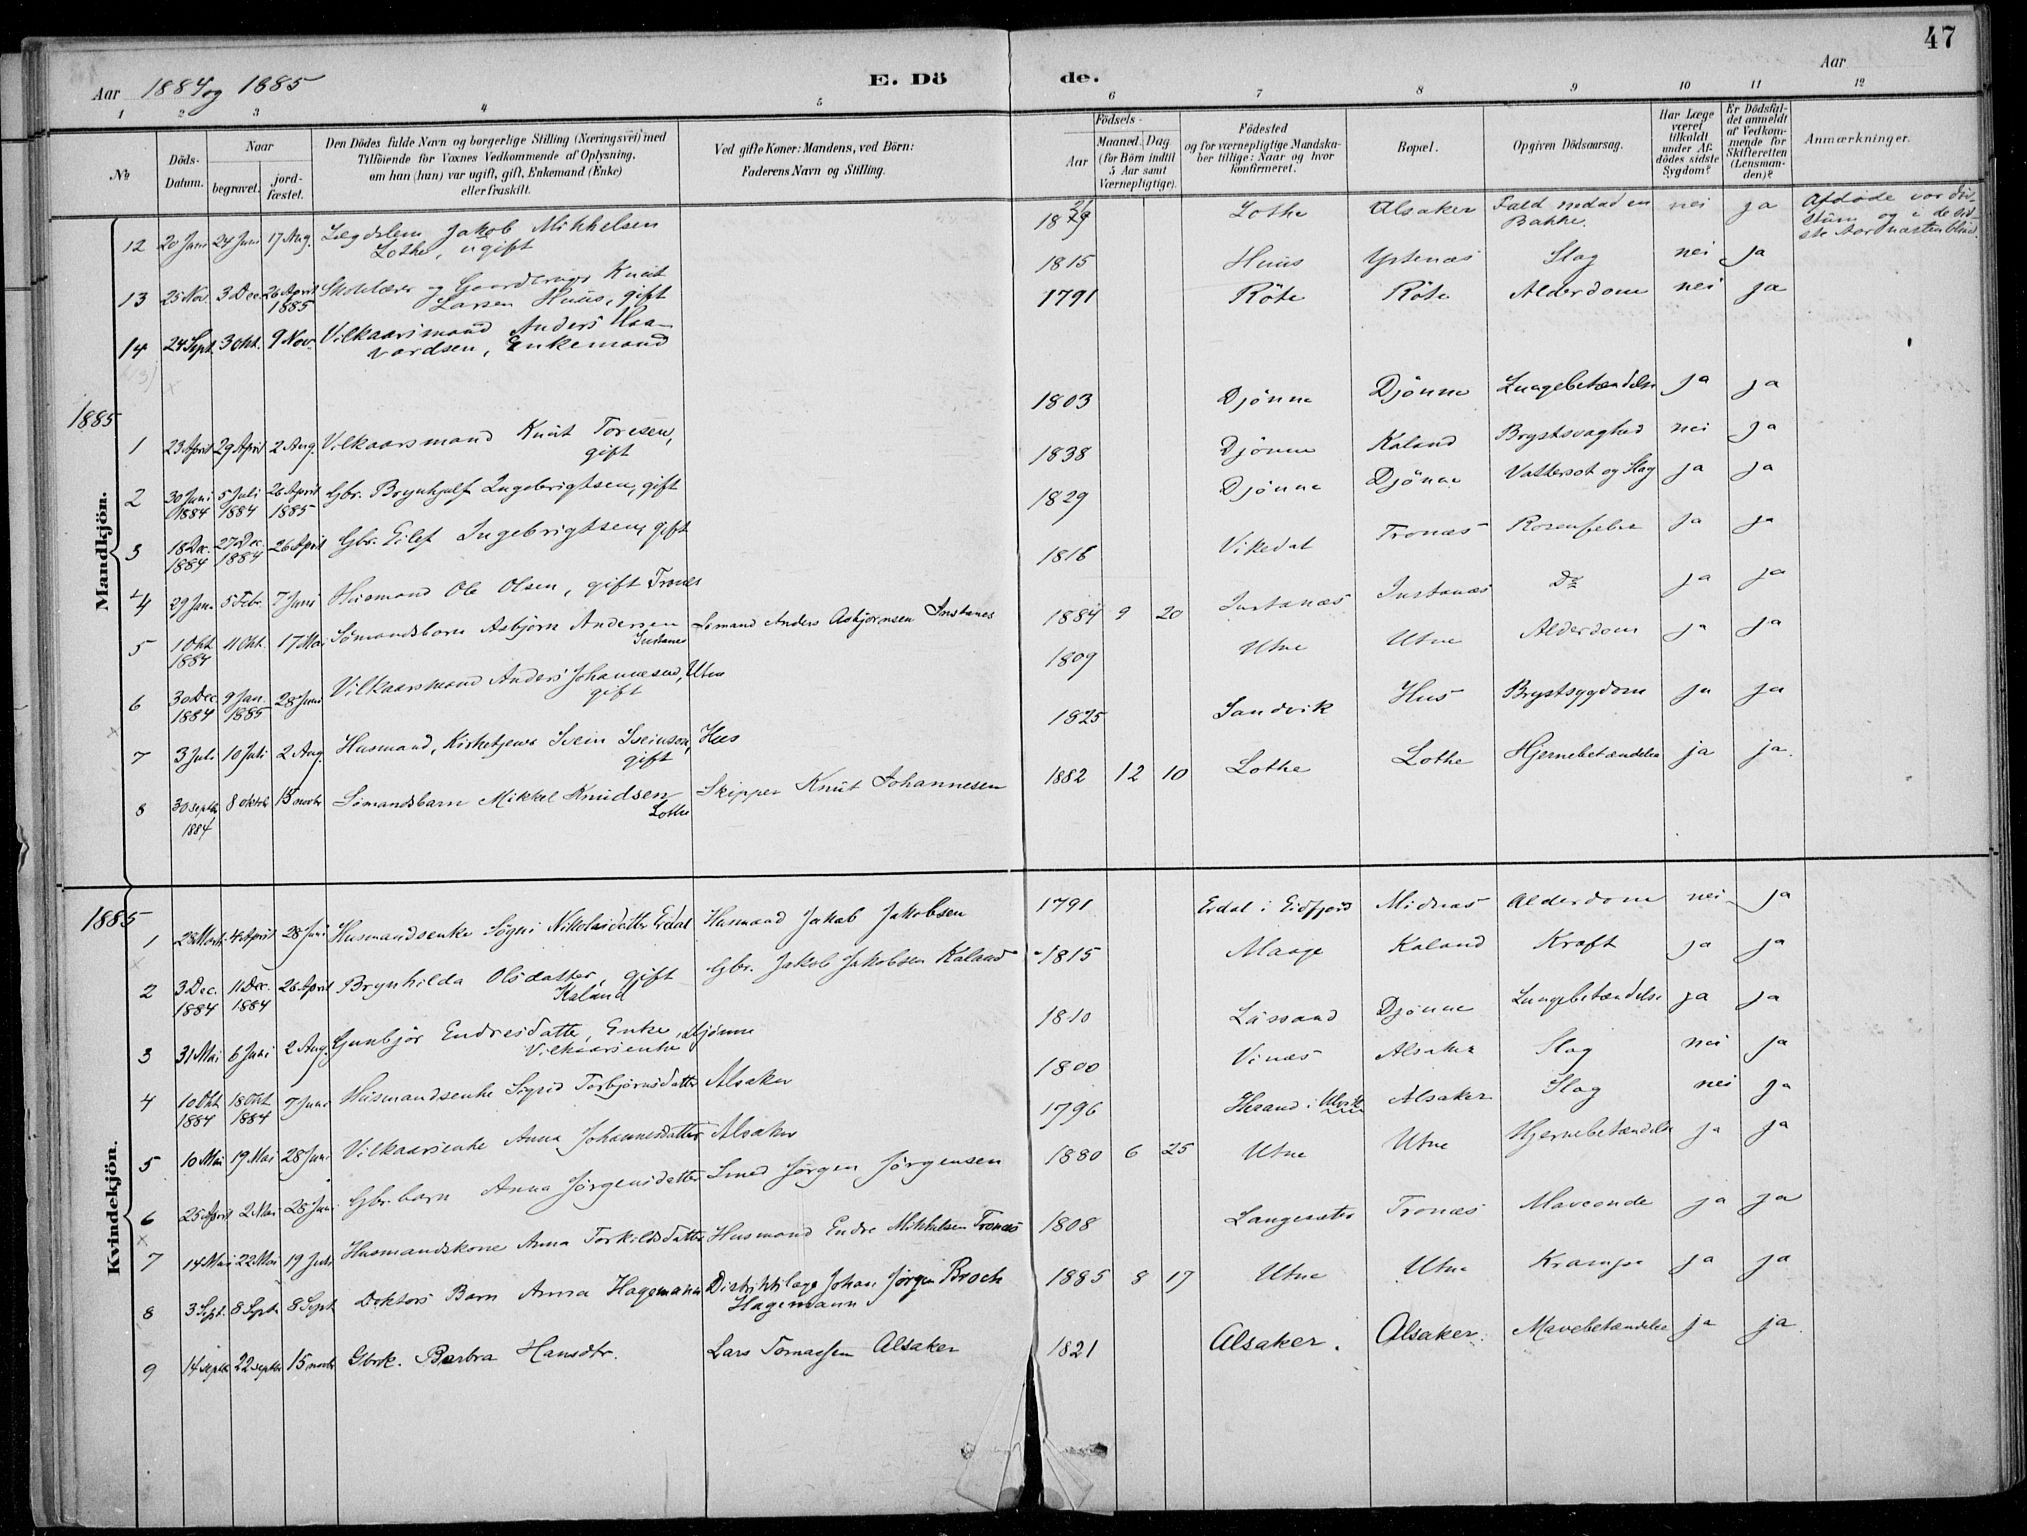 47
Aar 1884 og 1885
E. Döde.
Aar
1 2 3 4 5 6 7 8 9 10 11 12
No
Döds-Datum.
Naar
begravet.
jord-fæstet.
Den Dödes fulde Navn og borgerlige Stilling (Næringsvei) med
Tilföiende for Voxnes Vedkommende af Oplysning,
om han (hun) var ugift, gift, Enkemand (Enke)
eller fraskilt.
Ved gifte Koner: Mandens, ved Börn:
Faderens Navn og Stilling.
Födsels-
Aar
Maaned. Dag.
(for Börn indtil
5 Aar samt
Værnepligtige).
Födested
og for værnepligtige Mandska-
ber tillige: Naar og hvor
konfirmeret.
Bopæl.
Opgiven Dödsaarsag.
Har Læge
været
tilkaldt
under Af-
dödes sidste
Sygdom?
Er Dödsfal-
det anmeldt
af Vedkom-
mende for
Skifteretten
(Lensman-
den)?
Anmærkninger.
Mandkjön.
12 20 Juni 24 Juni 17 Aug. Lægdslem Jakob Mikkelsen Lothe, ugift Lothe Alsaker Fald nedad en Bakke. nei ja Afdøde var døvstum og i de sidste Aar næsten blind.
13 25 Nov. 3 Dec. 26 April 1885 Skolelærer og Gaardbruger Knut Larsen Huus, gift 1815 Huus Ystenæs Slag nei ja
14 24 Sept. 3 Okt. 9 Nov. Vilkaarsmand Anders Haavardsen, Enkemand 1791 Röte Röte Alderdom nei ja
1885
1 23 April 29 April 2 Aug. Vilkaarsmand Knut Toresen, gift 1803 Djönne Djönne Lungebetændelse ja ja
2 30 Juni 1884 5 Juli 1884 26 April 1885 Gbr. Brynhjulf Ingebrigtsen, gift 1838 Djönne Kaland Brystsvaghed nei ja
3 18 Dec. 1884 27 Dec. 1884 26 April Gbr. Eilef Ingebrigtsen, gift 1829 Djönne Djönne Vattersot og Slag ja ja
4 29 Jan. 5 Febr. 7 Juni Husmand Ole Olsen, gift Tronæs 1816 Vikedal Tronæs Rosenfeber ja ja
5 1 Okt. 1884 11 Okt. 17 Mai Sömandsbarn Asbjörn Andersen Instanes Sömand Anders Asbjörnsen Instanes 1884 9 20 Instanæs Instanæs Do ja ja
6 30 Dec. 1884 9 Jan. 1885 28 Juni Vilkaarsmand Anders Johannesen, Utne gift 1809 Utne Utne Alderdom ja ja
7 3 Juli 10 Juli 2 Aug. Husmand, Kirketjener Svein Sveinson, Hus gift 1825 Sandvik Hus Brystsygdom ja ja
8 30 septbr 1884 8 oktbr 15 novbr Sömandsbarn Mikkel Knudsen Lothe Skipper Knut Johannesen 1882 12 10 Lothe Lothe Hjernebetændelse ja ja.
Kvindekjön.
1885
1 4 April 28 Juni Husmandsenke Sögni Nikolaidatter Erdal Husmand Jakob Jakobsen 1791 Erdal i Eidfjord Midnæs Alderdom nei ja
2 3 Dec. 1884 11 Dec. 1884 26 April Brynhilda Olsdatter, gift Kaland Gbr. Jakob Jakobsen Kaland 1815 Maage Kaland Kræft ja ja
3 31 Mai 6 Juni 2 Aug. Gunbjør Endresdatter, Enke, Djönne Vilkaarsenke 1810 Djönne Lungebetændelse ja ja
4 10 Okt. 1884 18 Okt. 1884 7 Juni Husmandsenke Sigrid Torbjörnsdatter Alsaker 1800 Vinæs Alsaker Slag nei ja
5 10 Mai 19 Mai 28 Juni Vilkaarsenke Anna Johannesdatter Alsaker 1796 Herand i Ulvik Alsaker Slag nei ja
6 25 April 2 Mai 28 Juni Gbr. barn Anna Jörgensdatter Smed Jörgen Jörgensen 1880 6 25 Utne Utne Hjernebetændelse ja ja
7 14 Mai 22 Mai 19 Juli Husmandskone Anna Torkildsdatter Husmand Endre Mikkelsen Tronæs 1808 Langesæter Tronæs Maveonde ja ja
8 3 Sept. 8 Sept. 8 Sept. Doktors Barn Anna Hagemann Distriktslæge Johan Jörgen Broch Hagemann 1885 8 17 Utne Utne Krampe ja ja
9 14 septbr 22 septbr 15 novbr Gbrk. Barbra Hansdtr. Lars Tomassen Alsaker 1821 Alsaker. Alsaker. Mavebetændelse ja ja.